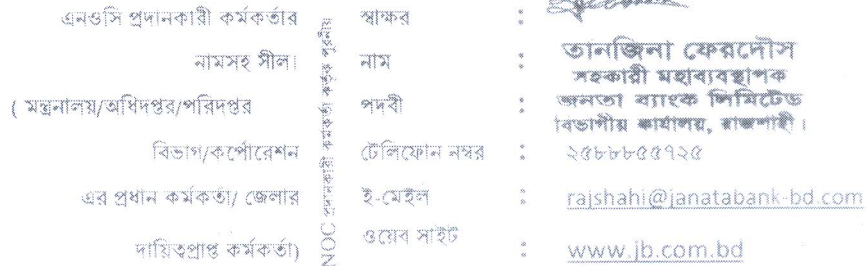 এনওসি প্রদানকারী কর্মকর্তার
নামসহ সীল।
( মন্ত্রনালয়/অধিদপ্তর/পরিদপ্তর
বিভাগ/কর্পোরেশন
এর প্রধান কর্মকর্তা/ জেলার
দায়িত্বপ্রাপ্ত কর্মকর্তা)
NOC প্রদানকারী কর্মকর্তা কর্তৃক পূরনীয়
স্বাক্ষর :
নাম : তানজিনা ফেরদৌস
সহকারী মহাব্যবস্থাপক
পদবী : জনতা ব্যাংক লিমিটেড
বিভাগীয় কার্যালয়, রাজশাহী।
টেলিফোন নম্বর : ২৫৮৮৮৫৫৭২৫
ই-মেইল : rajshahi@janatabank-bd.com
ওয়েব সাইট : www.jb.com.bd